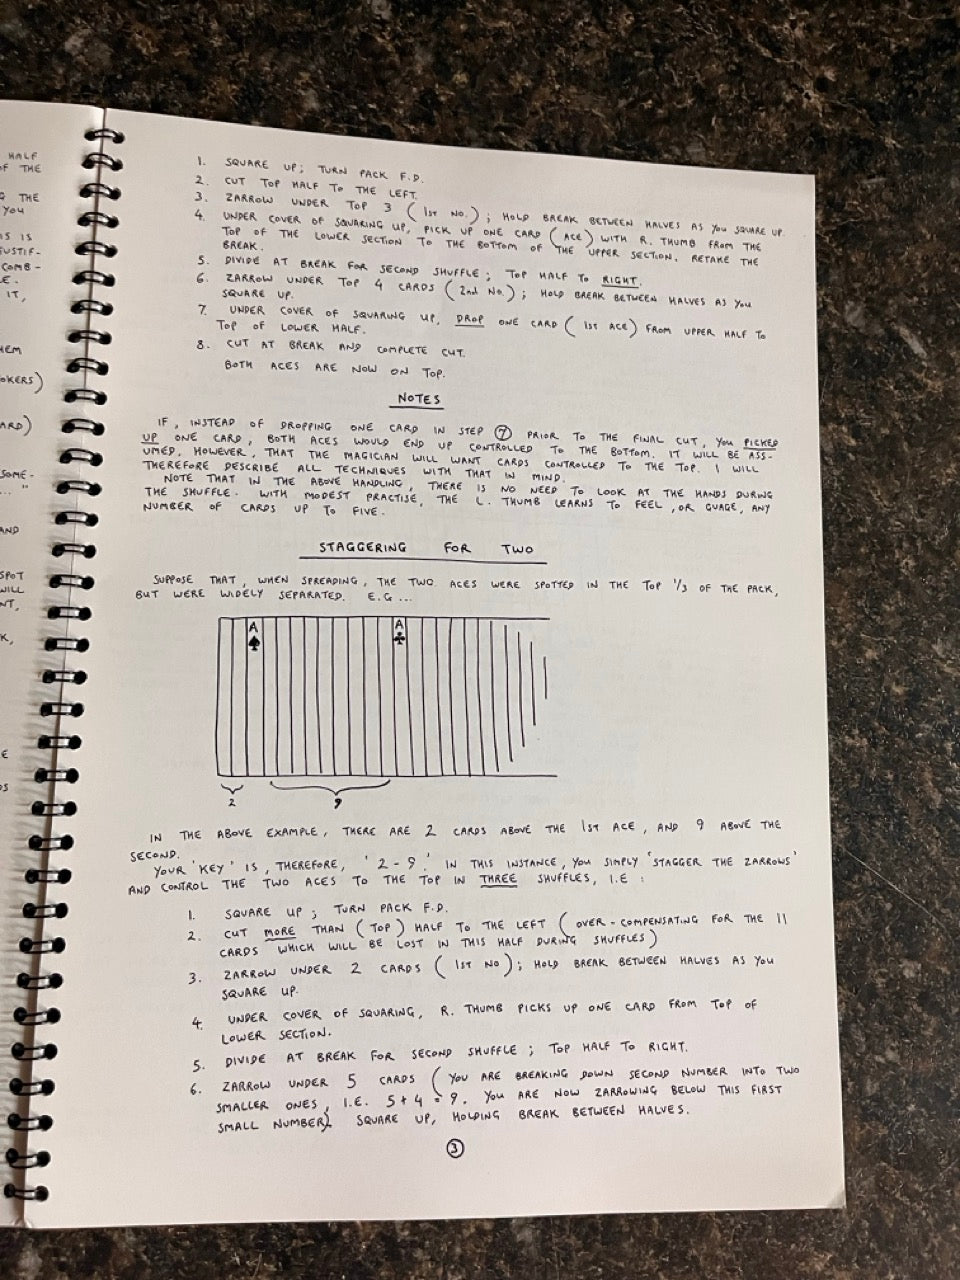 HALF
OF THE
THE
YOU
IS IS
COMB-
IT,
HEM
OKERS)
ARD)
SOME-
..."
AND
SPOT
WILL
NT,
K,
E
DS
1. SQUARE UP; TURN PACK F.D.
2. CUT TOP HALF TO THE LEFT.
3. ZARROW UNDER TOP 3 (1ST NO.); HOLD BREAK BETWEEN HALVES AS YOU SQUARE UP.
4. UNDER COVER OF SQUARING UP, PICK UP ONE CARD (ACE) WITH R. THUMB FROM THE
TOP OF THE LOWER SECTION TO THE BOTTOM OF THE UPPER SECTION. RETAKE THE
BREAK.
5. DIVIDE AT BREAK FOR SECOND SHUFFLE; TOP HALF TO RIGHT.
6. ZARROW UNDER TOP 4 CARDS (2nd No.); HOLD BREAK BETWEEN HALVES AS YOU
SQUARE UP.
7. UNDER COVER OF SQUARING UP, DROP ONE CARD (1ST ACE) FROM UPPER HALF TO
TOP OF LOWER HALF.
8. CUT AT BREAK AND COMPLETE CUT.
BOTH ACES ARE NOW ON TOP.
NOTES
IF, INSTEAD OF DROPPING ONE CARD IN STEP ⑦ PRIOR TO THE FINAL CUT, YOU PICKED
UP ONE CARD, BOTH ACES WOULD END UP CONTROLLED TO THE BOTTOM. IT WILL BE ASS-
UMED, HOWEVER, THAT THE MAGICIAN WILL WANT CARDS CONTROLLED TO THE TOP. I WILL
THEREFORE DESCRIBE ALL TECHNIQUES WITH THAT IN MIND.
NOTE THAT IN THE ABOVE HANDLING, THERE IS NO NEED TO LOOK AT THE HANDS DURING
THE SHUFFLE. WITH MODEST PRACTISE, THE L. THUMB LEARNS TO FEEL, OR GUAGE, ANY
NUMBER OF CARDS UP TO FIVE.
STAGGERING FOR TWO
SUPPOSE THAT, WHEN SPREADING, THE TWO ACES WERE SPOTTED IN THE TOP 1/3 OF THE PACK,
BUT WERE WIDELY SEPARATED. E.G...
A A
2 9
IN THE ABOVE EXAMPLE, THERE ARE 2 CARDS ABOVE THE 1ST ACE, AND 9 ABOVE THE
SECOND.
YOUR 'KEY' IS, THEREFORE, '2-9'. IN THIS INSTANCE, YOU SIMPLY 'STAGGER THE ZARROWS'
AND CONTROL THE TWO ACES TO THE TOP IN THREE SHUFFLES, I.E:
1. SQUARE UP; TURN PACK F.D.
2. CUT MORE THAN (TOP) HALF TO THE LEFT (OVER-COMPENSATING FOR THE 11
CARDS WHICH WILL BE LOST IN THIS HALF DURING SHUFFLES)
3. ZARROW UNDER 2 CARDS (1ST NO); HOLD BREAK BETWEEN HALVES AS YOU
SQUARE UP.
4. UNDER COVER OF SQUARING, R. THUMB PICKS UP ONE CARD FROM TOP OF
LOWER SECTION.
5. DIVIDE AT BREAK FOR SECOND SHUFFLE; TOP HALF TO RIGHT.
6. ZARROW UNDER 5 CARDS (YOU ARE BREAKING DOWN SECOND NUMBER INTO TWO
SMALLER ONES, I.E. 5+4=9. YOU ARE NOW ZARROWING BELOW THIS FIRST
SMALL NUMBER). SQUARE UP, HOLDING BREAK BETWEEN HALVES.
③